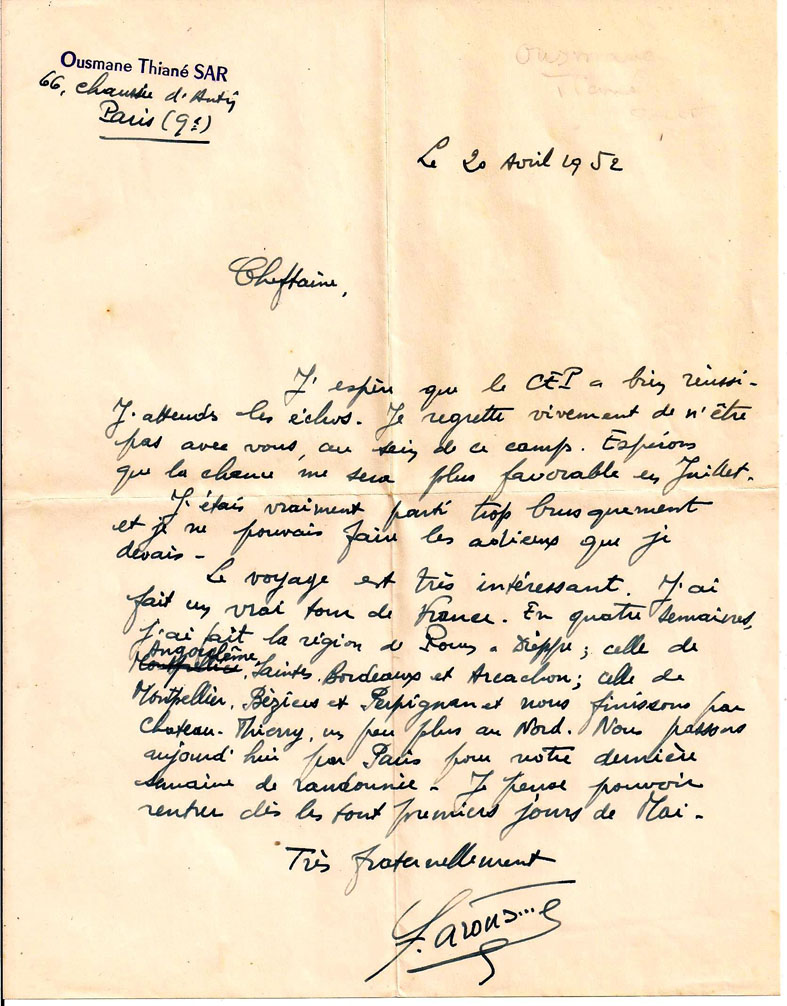 Ousmane Thiané SAR
66, chaussée d'Antin
Paris (9e)
Ousmane
Le 20 Avril 1952
Cheftaine,
J'espère que le CEP a bien réussi-
J'attends les échos. Je regrette vivement de n'être
pas avec vous, au sein de ce camp. Espérons
que la chance me sera plus favorable en Juillet.
J'étais vraiment parti trop brusquement
et je ne pouvais faire les adieux que je
devais -
Le voyage est très intéressant. J'ai
fait un vrai tour de France. En quatre semaines,
j'ai fait la région de Rouen à Dieppe; celle de
Angoulême
Montpellier, Saintes, Bordeaux et Arcachon; celle de
Montpellier, Béziers et Perpignan et nous finissons par
Chateau-Thierry, un peu plus au Nord. Nous passons
aujourd'hui par Paris pour notre dernière
semaine de randonnée - Je pense pouvoir
rentrer dès les tout premiers jours de Mai -
Très fraternellement